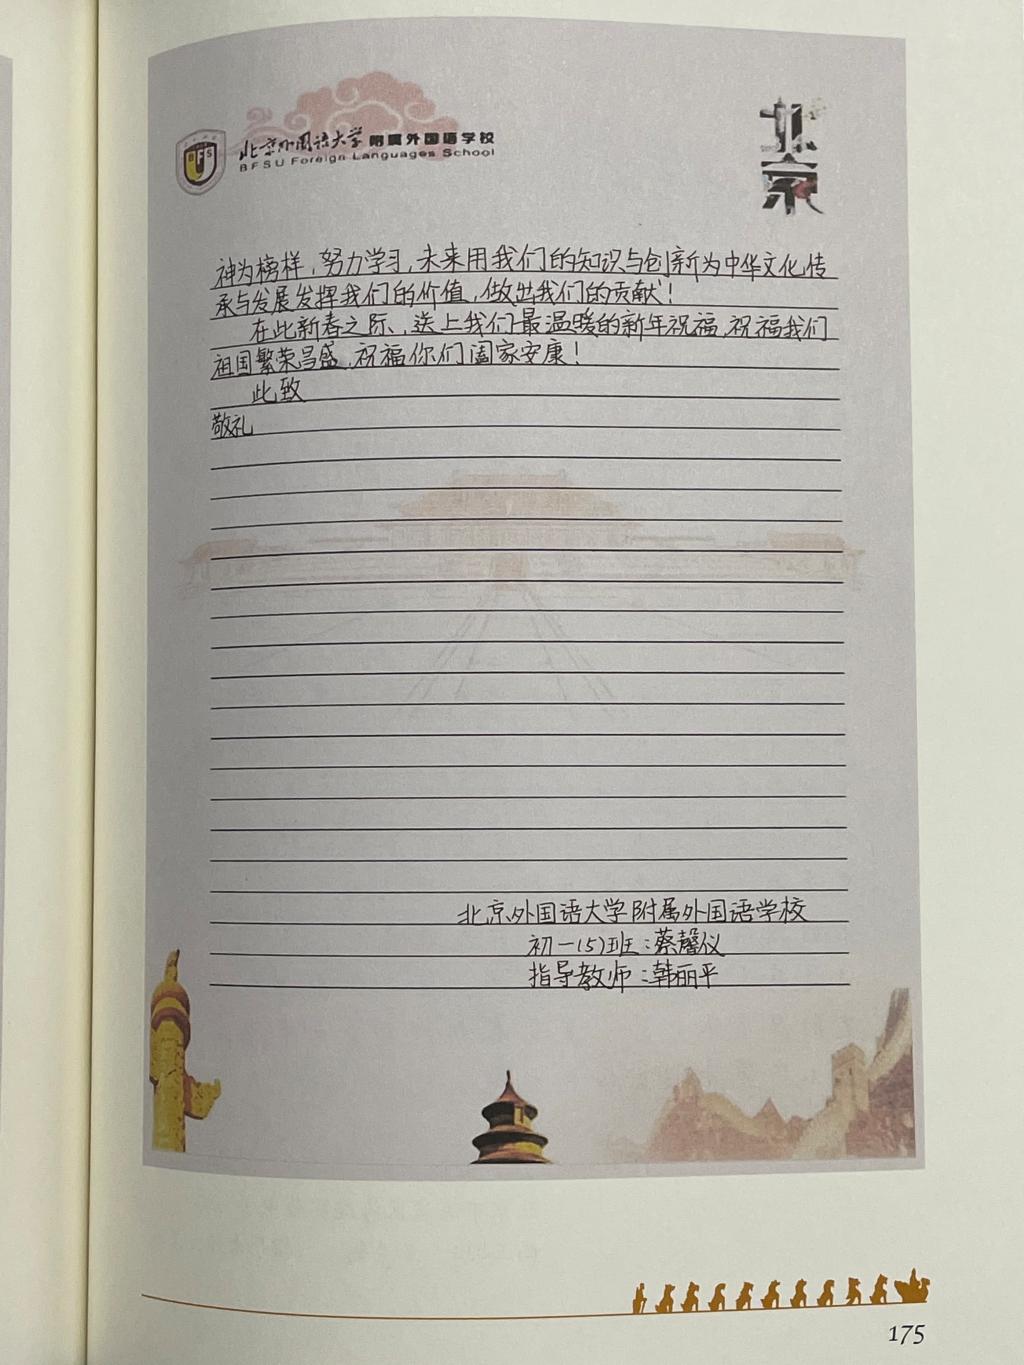 北京外国语大学 附属外国语学校
BFSU Foreign Languages School
BFS
北京
神为榜样，努力学习，未来用我们的知识与创新为中华文化传
承与发展发挥我们的价值，做出我们的贡献！
在此新春之际、送上我们最温暖的新年祝福，祝福我们
祖国繁荣昌盛，祝福你们阖家安康！
此致
敬礼
北京外国语大学附属外国语学校
初一(5)班：蔡馨仪
指导教师：韩丽平
175